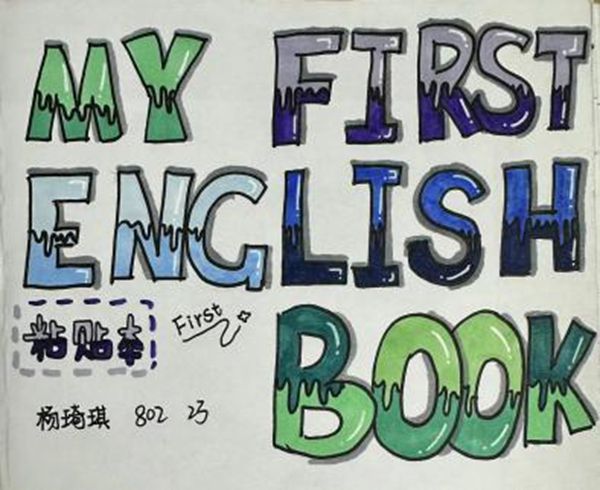 MY FIRST
ENGLISH
粘贴本 First
BOOK
杨琦琪 802 23